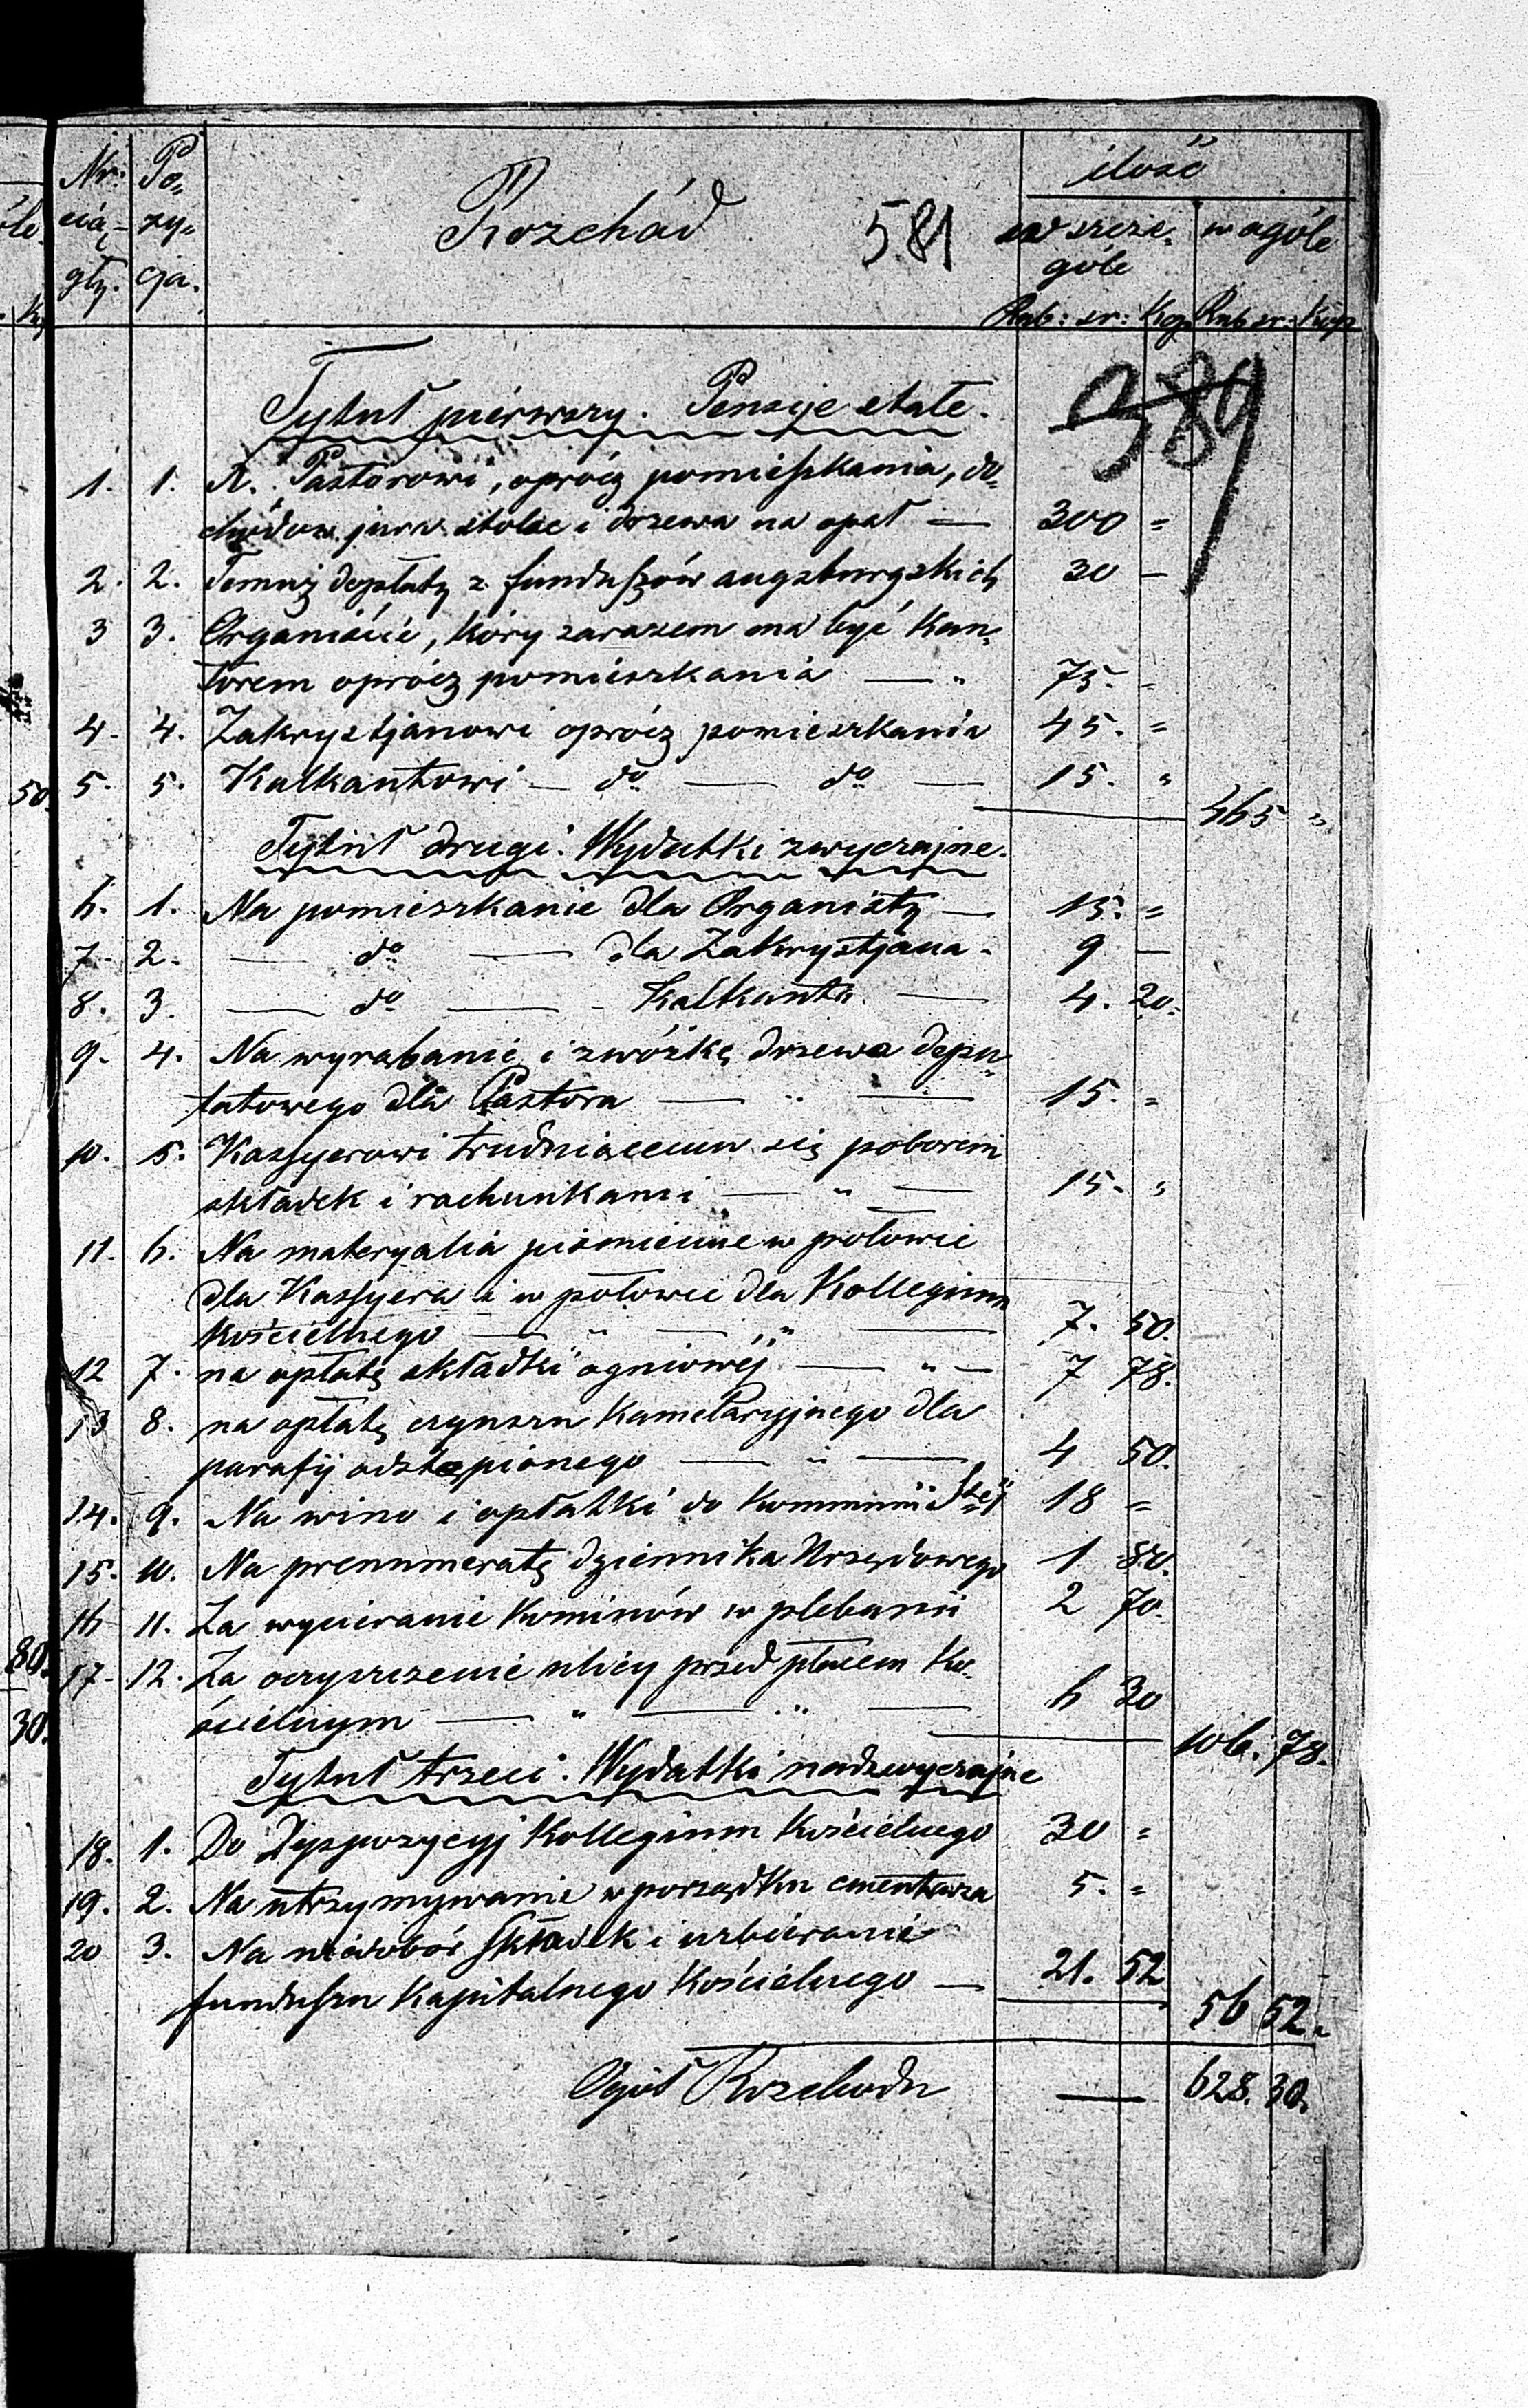 Nr: cią- gły. Po- zy- cja. Rozchód 581 ilość
w szcze- góle w ogóle
Rub: sr: Kop. Rub sr: Kop
Tytuł pierwszy. Pensije stałe. 389
1. 1. X. Pastorowi, oprócz pomieszkania, do-
chodów jura stolae i drzewa na opał — 300 "
2. 2. Temuż dopłaty z funduszów augsburgskich 30 —
3 3. Organiście, który zarazem ma być Kan-
torem oprócz pomieszkania — " 75. "
4. 4. Zakrystjanowi oprócz pomieszkania 45. "
5. 5. Kalkantowi — do — do — 15. "
465 "
Tytuł drugi. Wydatki zwyczajne.
6. 1. Na pomieszkanie dla Organisty — 15. "
7. 2. — do — dla Zakrystjana - 9 —
8. 3. — do — Kalkanta — 4. 20.
9. 4. Na wyrąbanie i zwózkę drzewa depu-
tatowego dla Pastora — " — 15. "
10. 5. Kassyerowi trudniącemu się poborem
składek i rachunkami — " — 15. "
11. 6. Na materyalia piśmienne w połowie
dla Kassyera a w połowie dla Kollegium
Kościelnego — " — " — 7. 50.
12 7. na opłatę składki ogniowéj — " — 7 78.
13 8. na opłatę czynszu Kamelaryjnego dla
parafij odstąpionego — " — 4 50.
14. 9. Na wino i opłatki do Kommunii Stej 18 "
15. 10. Na prenumeratę dziennika Urzędowego 1 80.
16 11. Za wycieranie Kominów w plebanii 2 70.
17. 12. Za oczyszczenie ulicy przed placem Ko-
ścielnym — " — " — 6 30
106. 78.
Tytuł trzeci. Wydatki nadzwyczajne
18. 1. Do Dyspozycyj Kollegium Kościelnego 30 "
19. 2. Na utrzymywanie w porządku cmentarza 5. "
20 3. Na niedobór składek i uzbieranie
funduszu Kapitalnego Kościelnego — 21. 52
56 52.
Ogół Rozchodu — 628. 30.